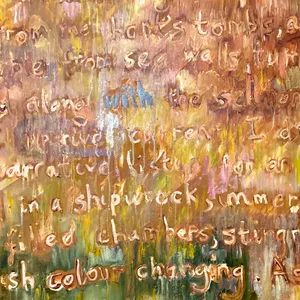 from merchants tombs, a
from sea walls, turn
g along with the self
up-river current I a
narrative, listen for an
in a shipwreck, summer,
filled chambers, stur
ish colour changing. As